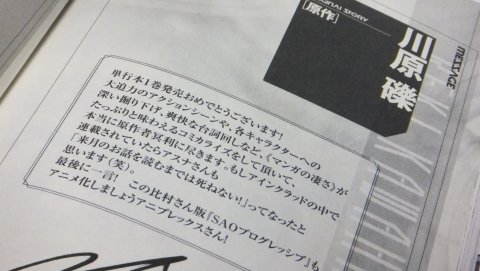 MESSAGE
ORIGINAL STORY
[原作]
川原 礫
単行本1巻発売おめでとうございます!
大迫力のアクションシーンや、各キャラクターへの
深い掘り下げ、爽快な台詞回しなど、《マンガの凄さ》が
たっぷりと味わえるコミカライズをして頂いて、
本当に原作者冥利に尽きます。もしアインクラッドの中で
連載されていたらアスナさんも
「来月のお話を読むまでは死ねない!」ってなったと
思います(笑)。
最後に一言! この比村さん版『SAOプログレッシブ』も
アニメ化しましょうアニプレックスさん!